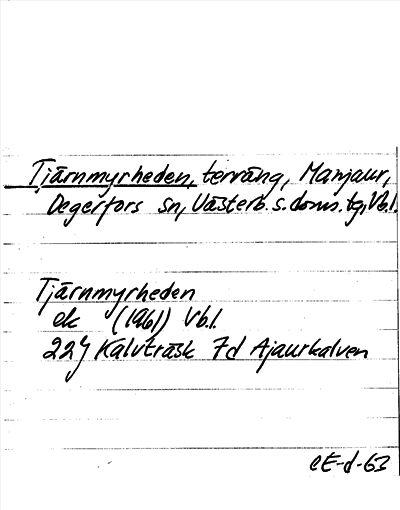 Tjärnmyrheden, terräng, Manjaur,
Degerfors sn, Västerb. s. doms. tg, Vb.l.
Tjärnmyrheden
ek (1961) Vb.l.
22J Kalvträsk 7d Ajaurkalven
CE-d-63